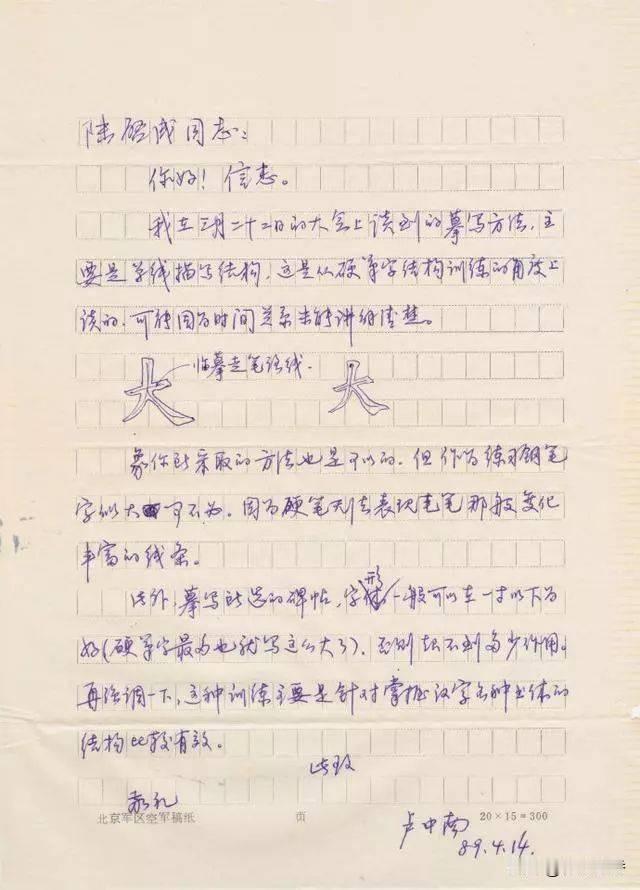 陆启成同志：
你好！信悉。
我在三月二十二日的大会上谈到的摹写方法，主
要是单线描写结构，这是从硬笔字结构训练的角度上
谈的，可能因为时间关系未能讲细清楚。
大 临摹走笔路线． 大
象你所采取的方法也是可以的，但作为练习钢笔
字似大可不为。因为硬笔无法表现毛笔那般变化
丰富的线条。
此外，摹写所选的碑帖，字形一般可以在一寸以下为
好（硬笔字最多也就写这么大了），否则起不到多少作用。
再强调一下，这种训练主要是针对掌握汉字各种书体的
结构比较有效。
此致
敬礼
卢中南
89.4.14.
北京军区空军稿纸 页 20×15=300